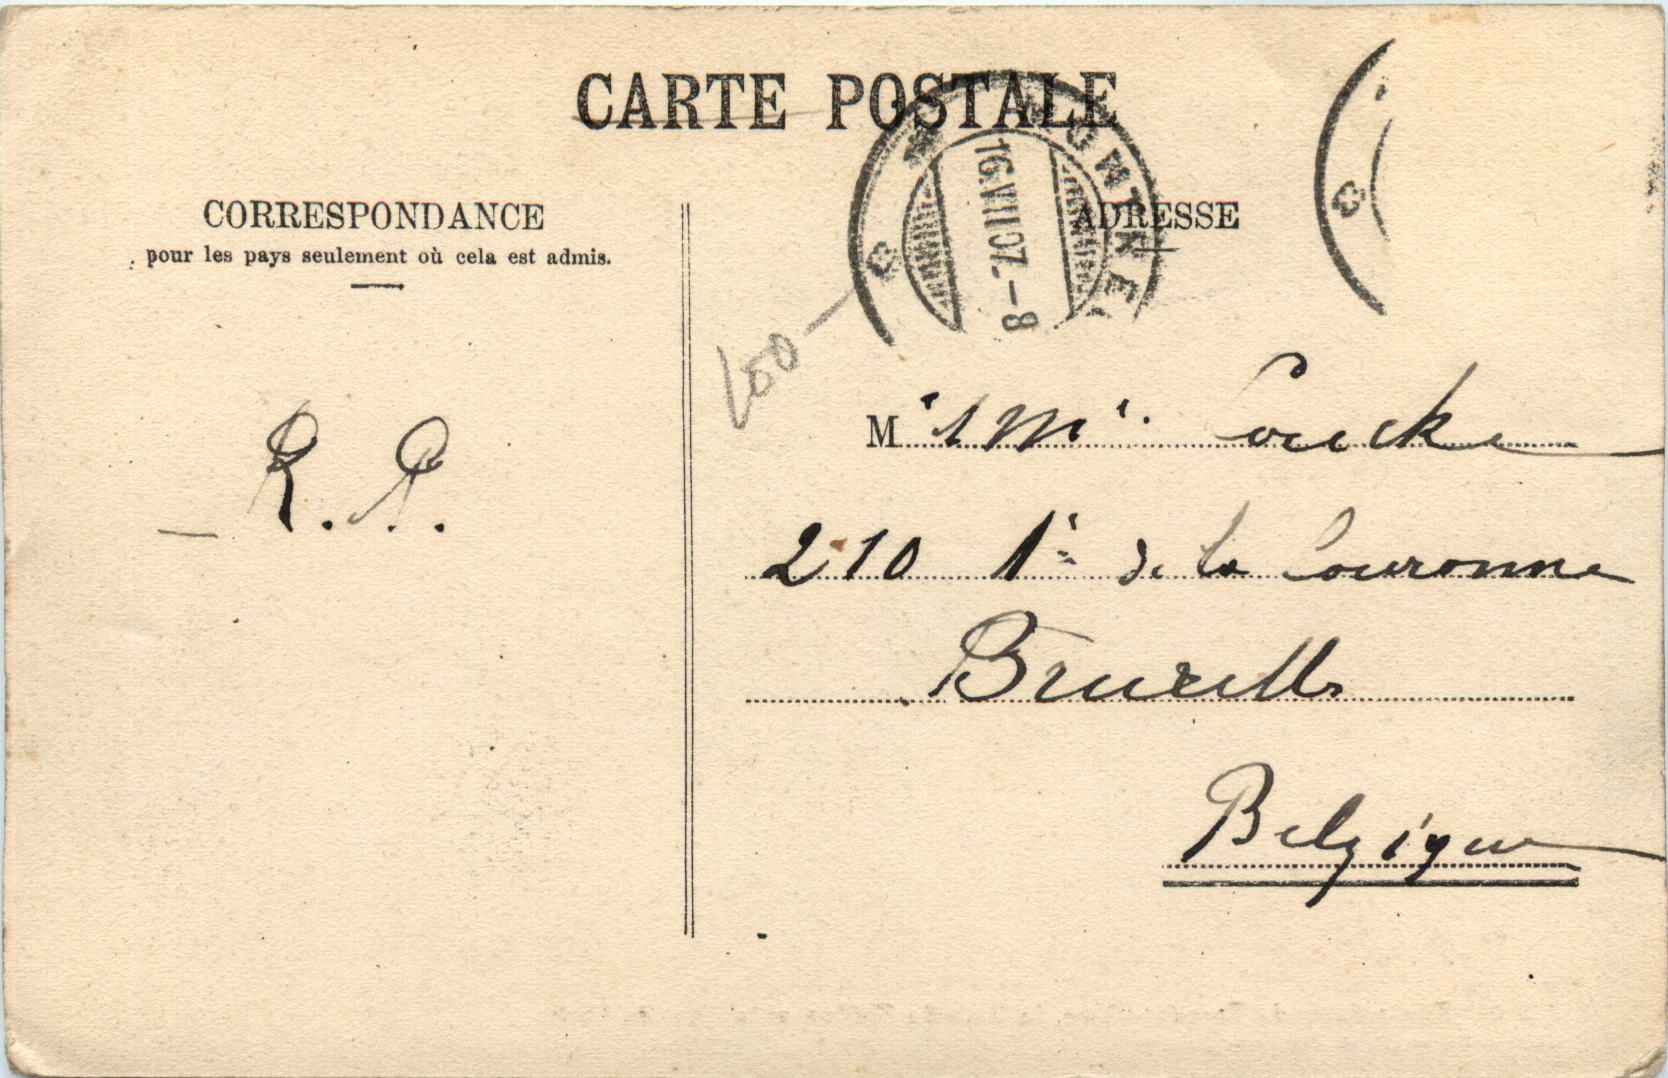 CARTE POSTALE
CORRESPONDANCE
pour les pays seulement où cela est admis.
ADRESSE
16.VII.07.-8
R. P.
M
210 de la Couronne
Bruxelles
Belgique